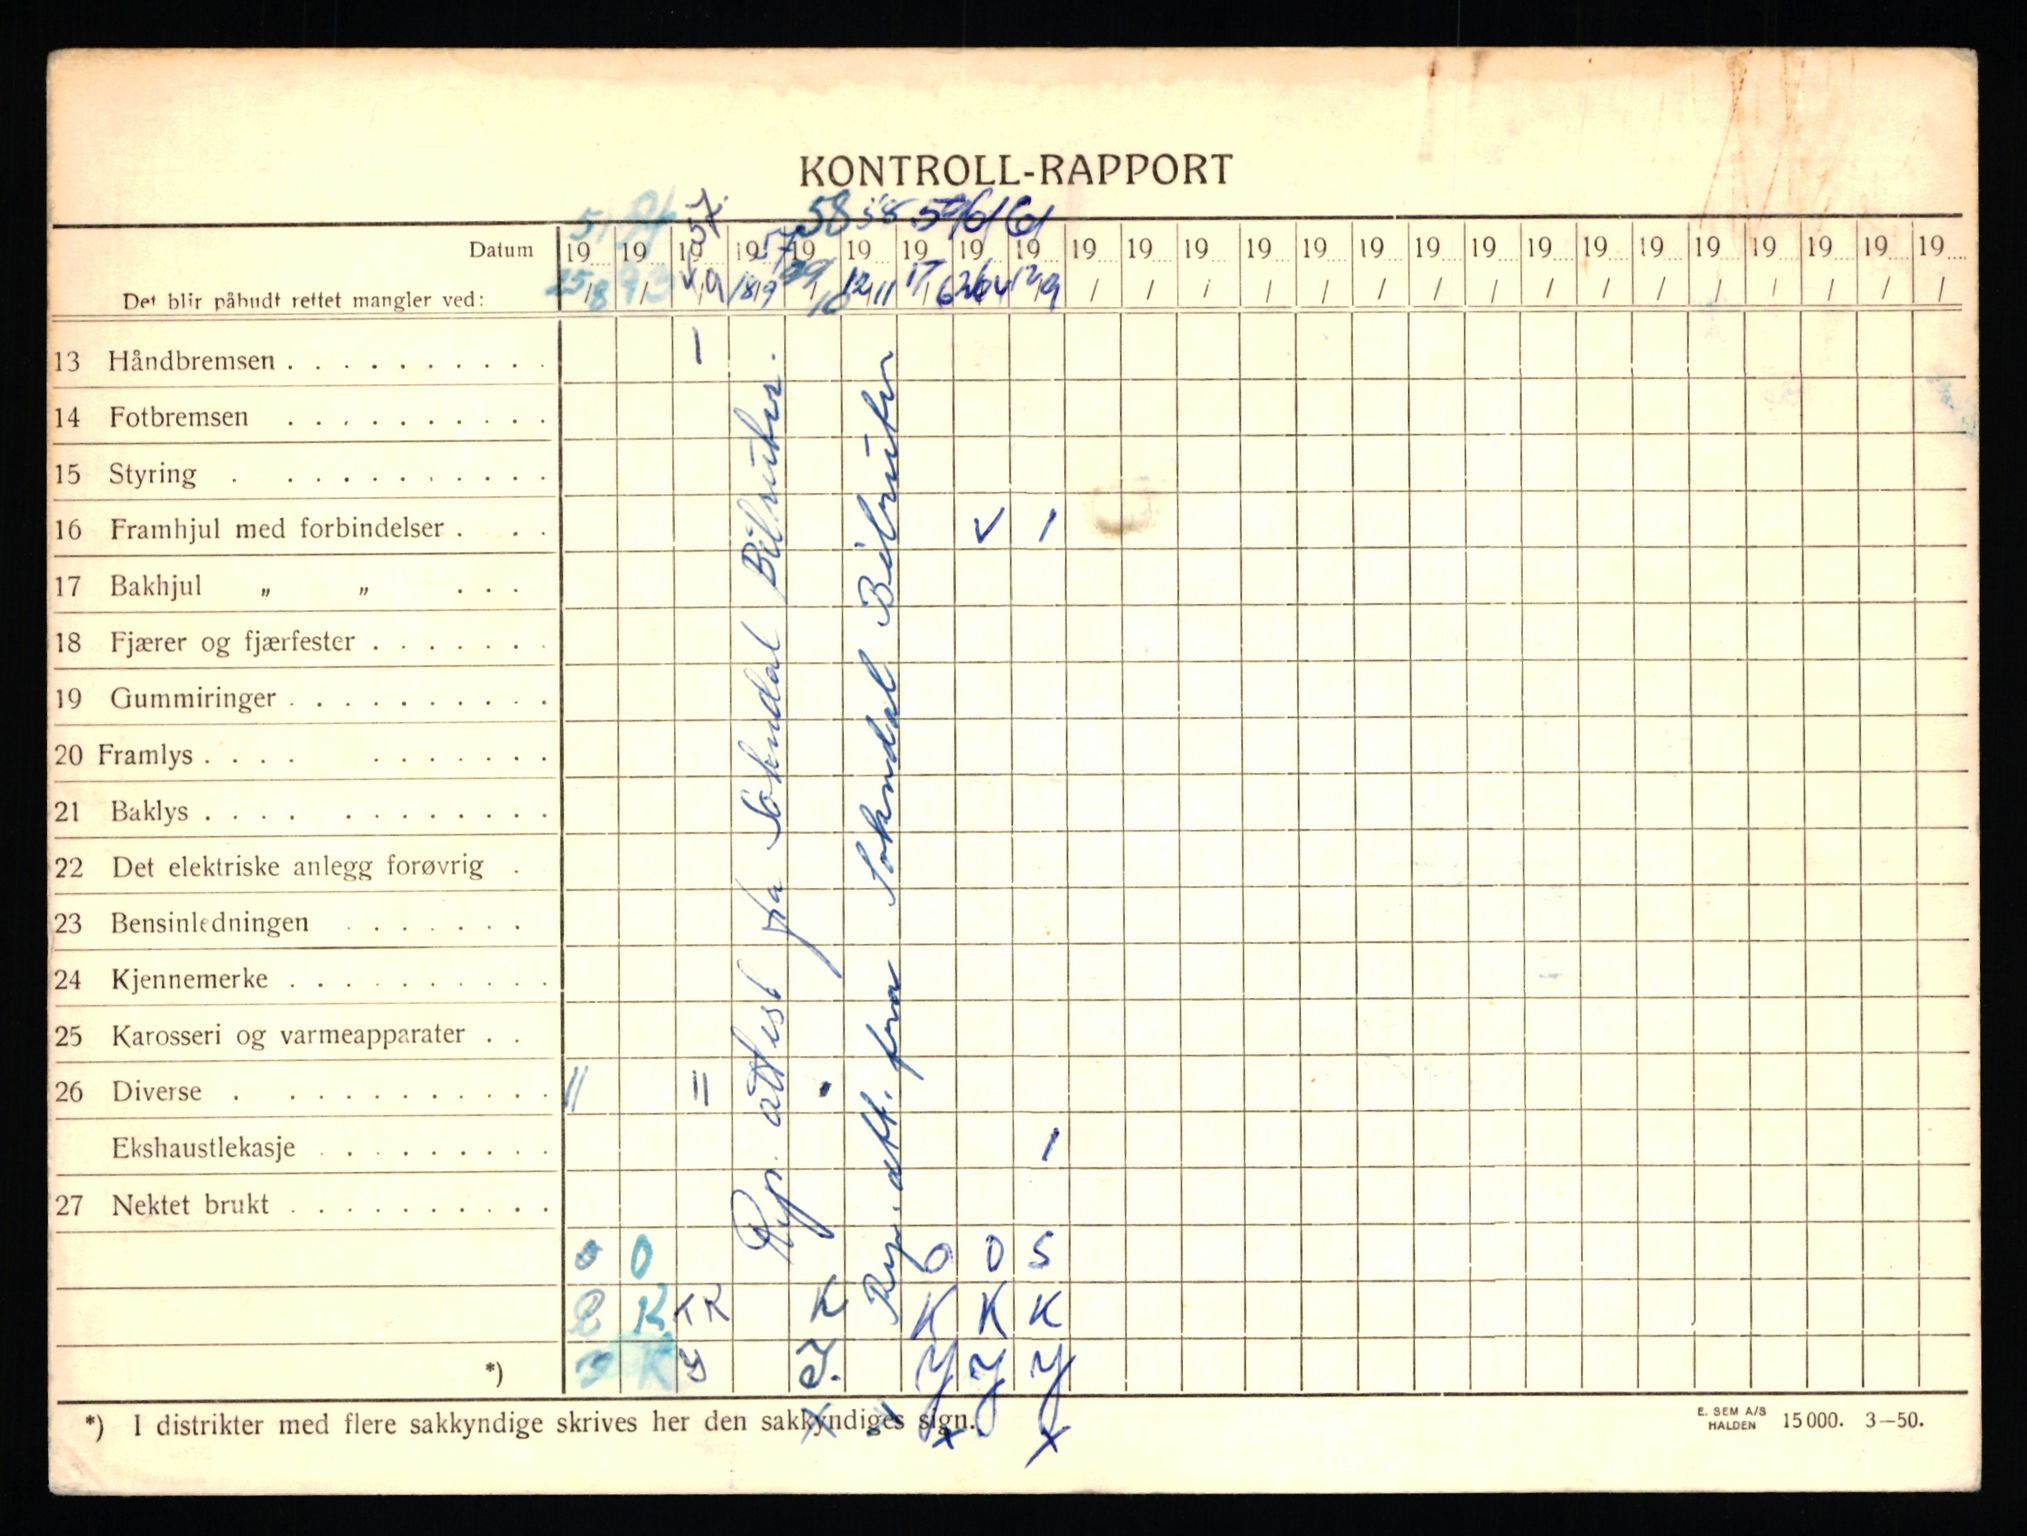 KONTROLL-RAPPORT
51 57 57 58 58 59 61 61
Datum 19 19 19 19 19 19 19 19 19 19 19 19 19 19 19 19 19 19 19 19 19 19 19 19 19
Det blir påbudt rettet mangler ved: 25/8 18/9 12/11 17/6 12/9
13 Håndbremsen
14 Fotbremsen
15 Styring
16 Framhjul med forbindelser
17 Bakhjul „ „
18 Fjærer og fjærfester
19 Gummiringer
20 Framlys
21 Baklys
22 Det elektriske anlegg forøvrig
23 Bensinledningen
24 Kjennemerke
25 Karosseri og varmeapparater
26 Diverse
Ekshaustlekasje
27 Nektet brukt
Rep. attest fra Sokndal Bilruter.
Rep. att. fra Sokndal Bilruter
O O O S
K K K K K K
*) K Y Y Y Y
*) I distrikter med flere sakkyndige skrives her den sakkyndiges sign.
E. SEM A/S
HALDEN 15 000. 3—50.